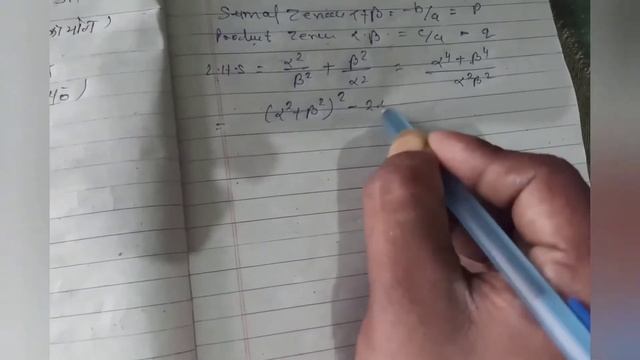 का योग)
Sum of Zeroes α+β = -b/a = p
Product Zeros α.β = c/a = q
L.H.S = α²/β² + β²/α² = α⁴+β⁴/α²β²
= (α²+β²)² - 2α